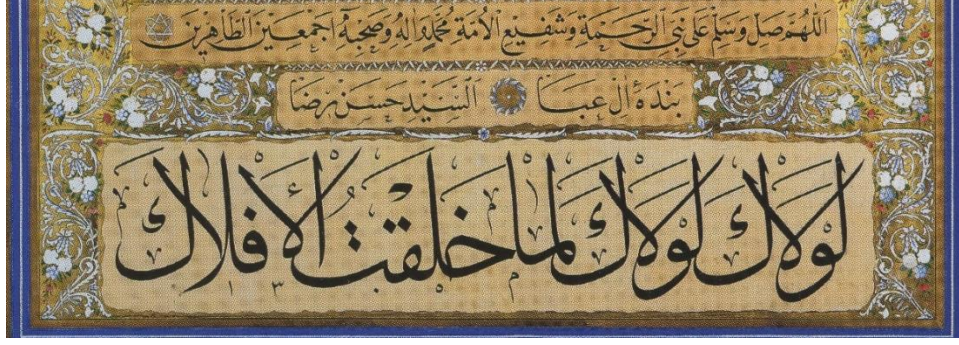 اللهم صل وسلم على نبي الرحمة وشفيع الأمة محمد واله وصحبه اجمعين الطاهرين
بندهٔ ال عبا السيد حسن رضا
لولاك لولاك لما خلقت الأفلاك